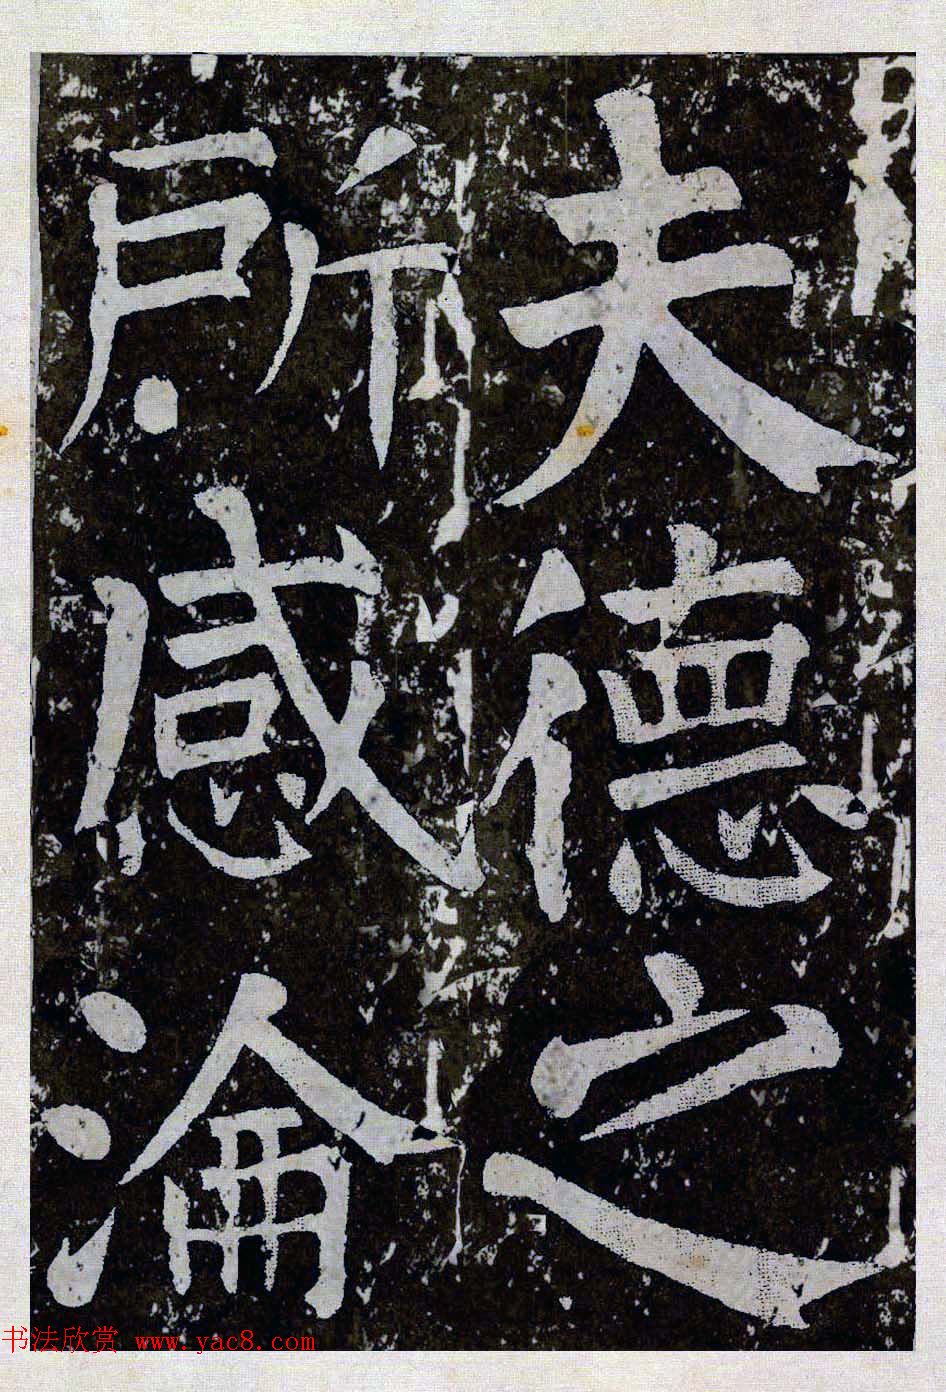 夫德之
所感淪
书法欣赏 www.yac8.com